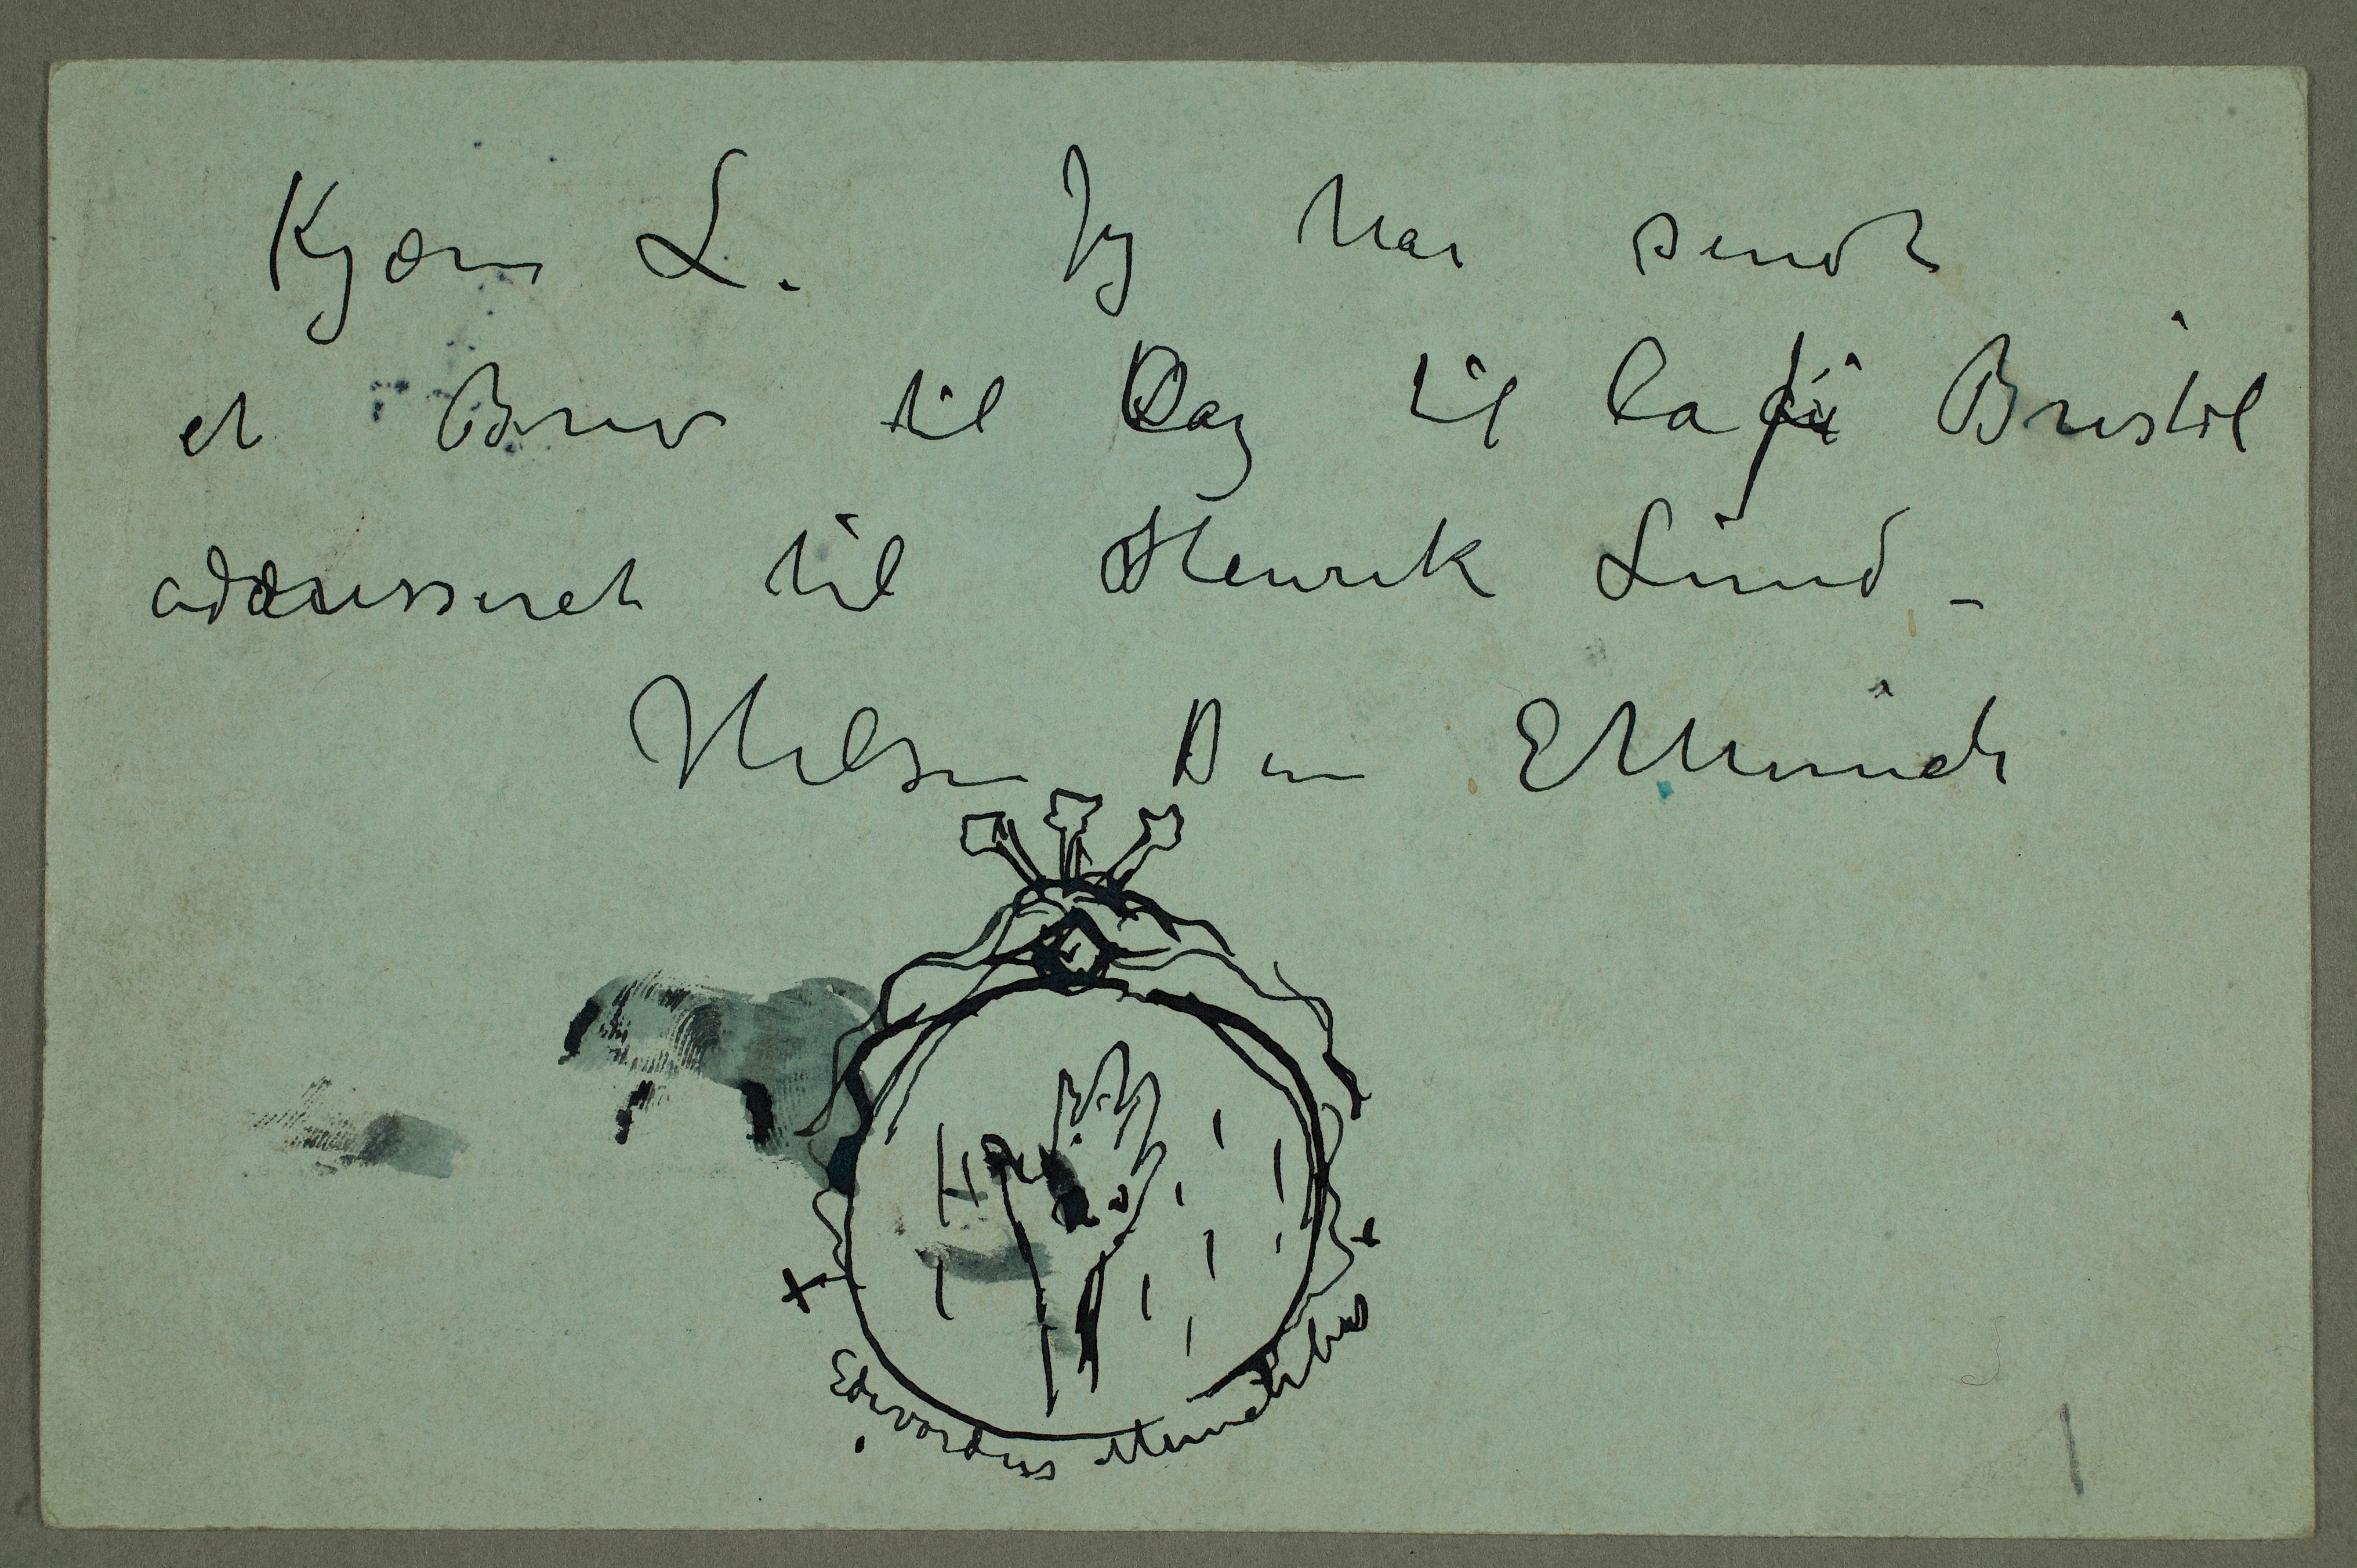 Kjære L. Jeg har sendt
et Brev til Dag til Café Bristol
addresseret til Henrik Lund –
Hilsen Din EMunch
Edvardus Munchibus